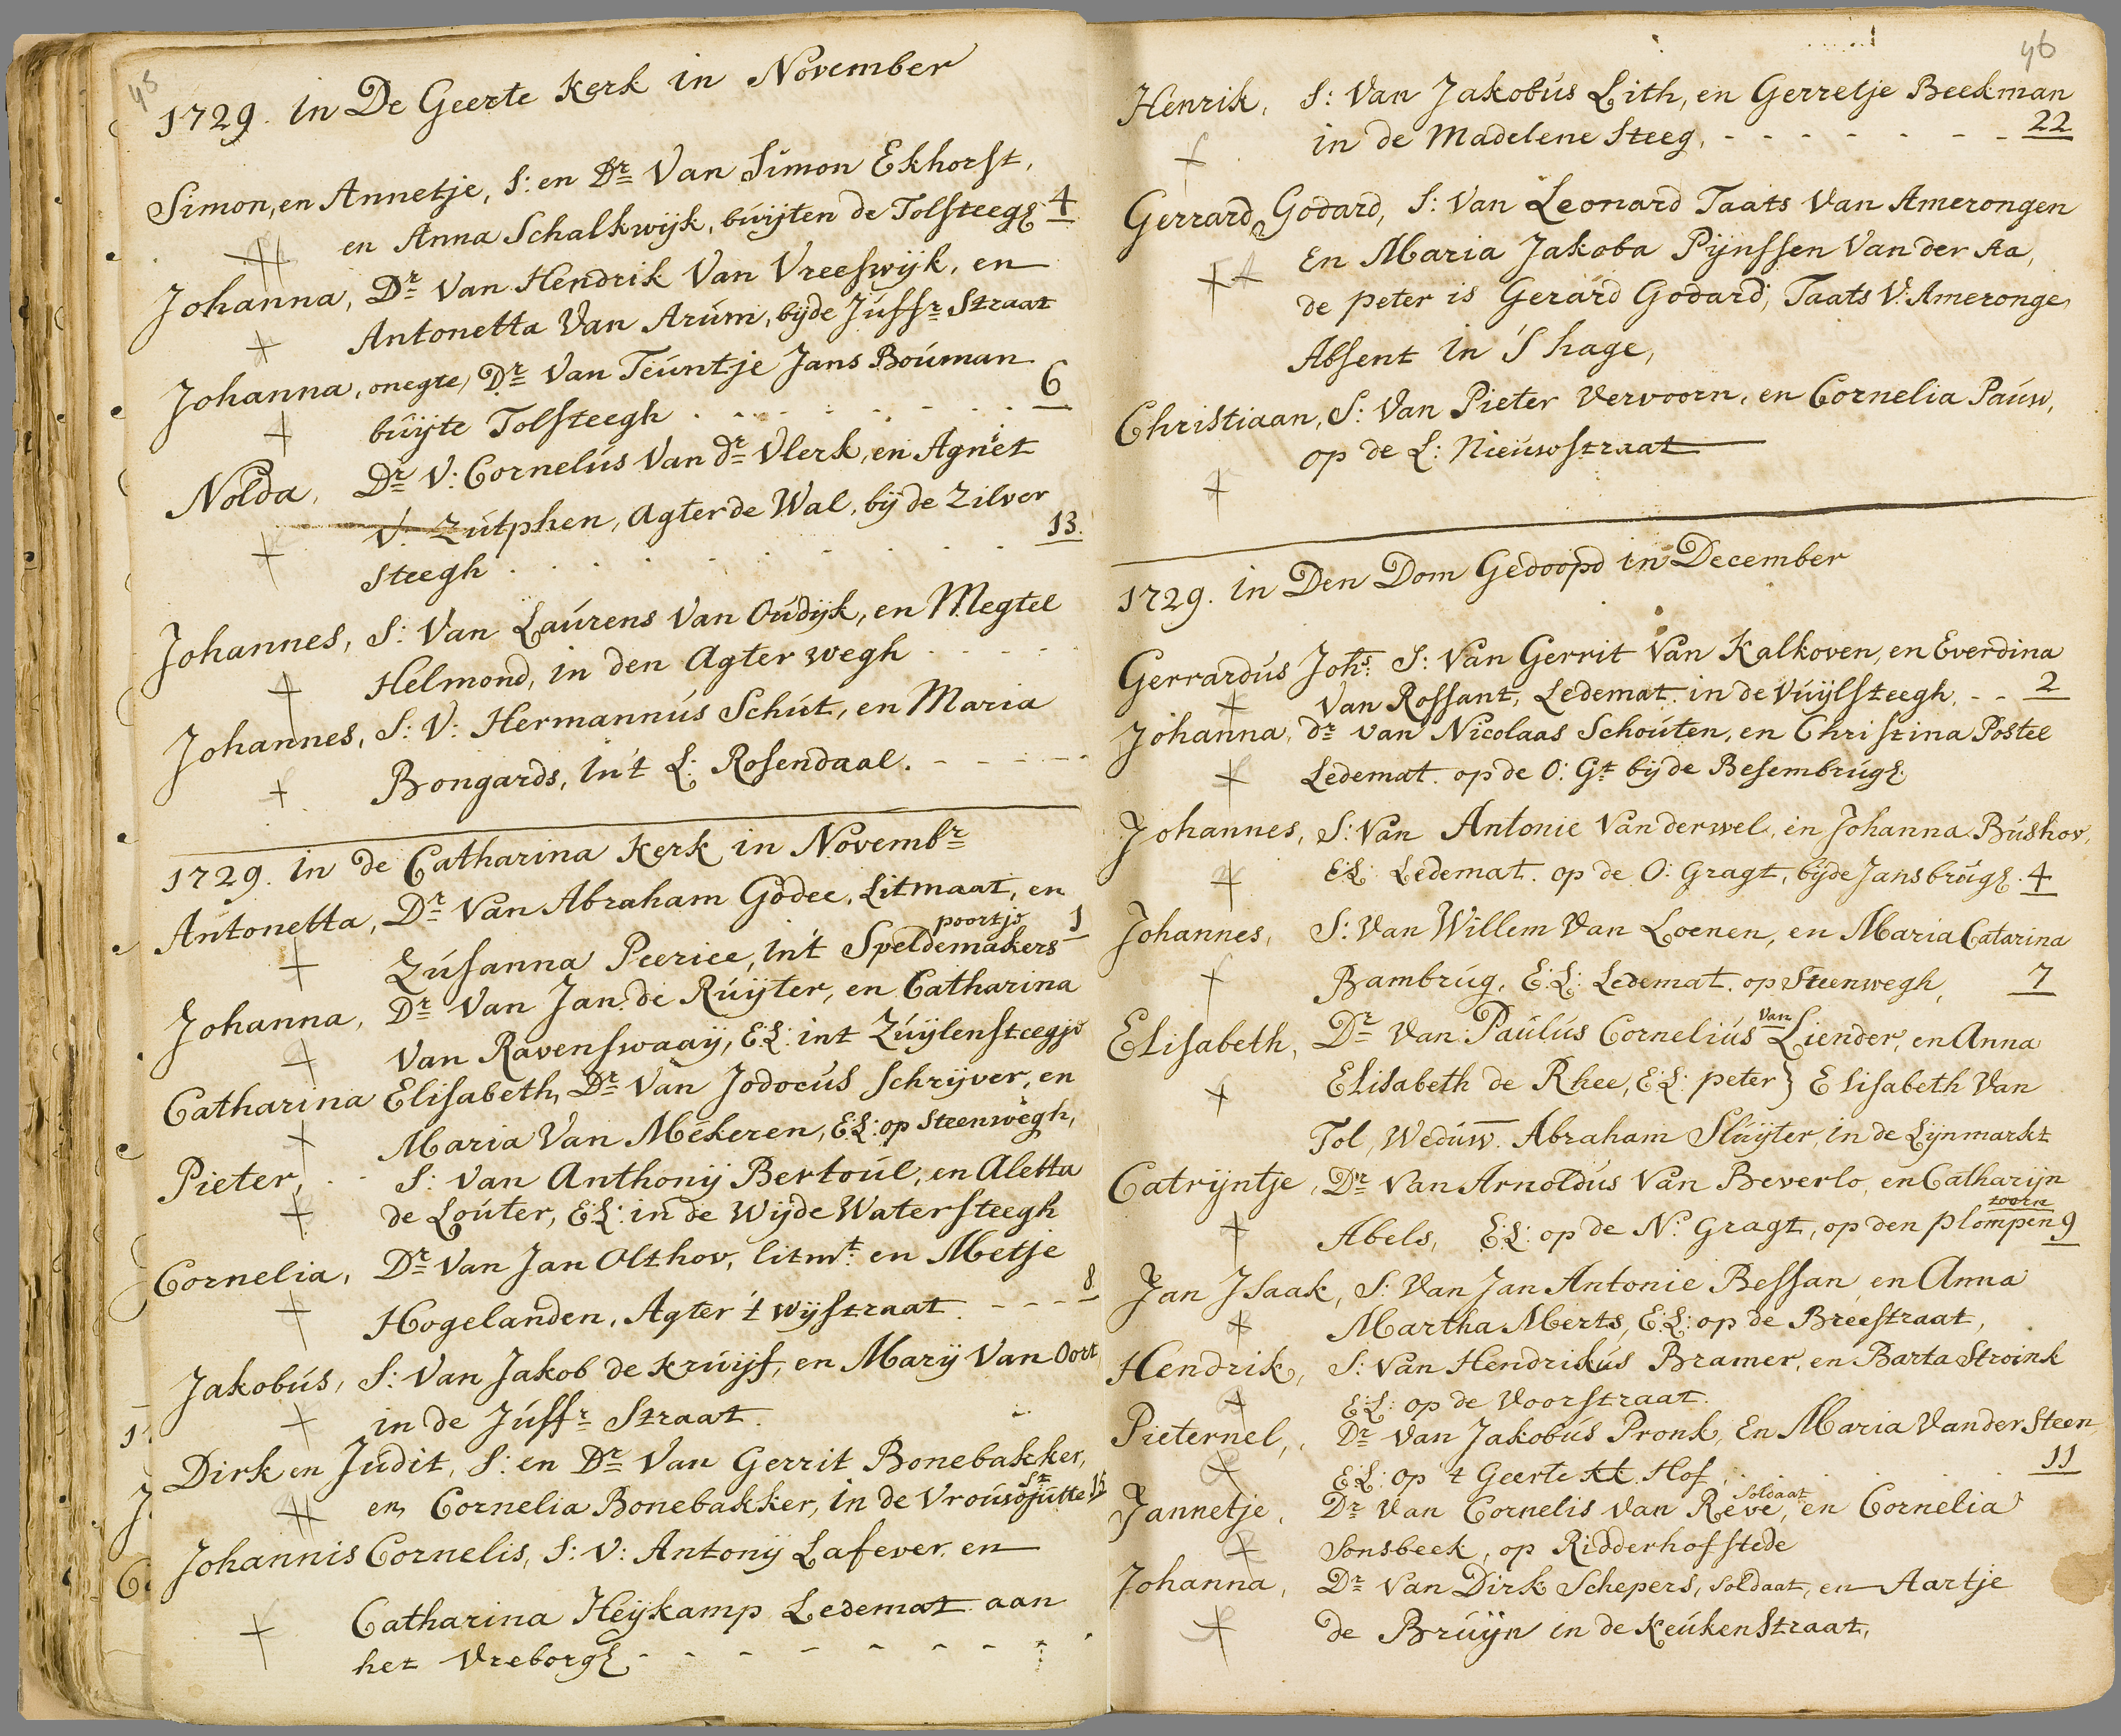 45
1729. in De Geerte Kerk in November
Simon, en Annetje, S: en Dr Van Simon Ekhorst,
en Anna Schalkwijk, buijten de Tolsteegh 4
Johanna, Dr Van Hendrik Van Vreeswijk, en
Antonetta Van Arum, bijde Juffr Straat
Johanna, onegte, Dr Van Teuntje Jans Bouman
buijte Tolsteegh . . . . . . . . 6
Nolda, Dr V: Cornelus Van dr Vlerk, en Agniet
V: Zutphen, Agter de Wal, bij de Zilver
Steegh . . . . . . . . . 13.
Johannes, S: Van Laurens Van Oudijk, en Megtel
Helmond, in den Agter wegh - - - -
Johannes, S: V: Hermannus Schut, en Maria
Bongards, in't L: Rosendaal. - - - - -
1729. in de Catharina Kerk in Novembr
Antonetta, Dr Van Abraham Godee, Litmaat, en
Zusanna Peeriee, in't Speldemakers poortje 1
Johanna, Dr Van Jan de Ruijter, en Catharina
Van Ravenswaaij, E:L: int Zuijlensteegje
Catharina Elisabeth, Dr Van Jodocus Schrijver, en
Maria Van Mekeren, E:L: op Steenwegh,
Pieter, . . S: Van Anthonij Bertoul, en Aletta
de Louter, E:L: in de Wijde Watersteegh
Cornelia, Dr Van Jan Olthov, litmt: en Metje
Hogelanden, Agter 't wijstraat. - - - - 8
Jakobus, S: Van Jakob de Kruijf, en Marij Van Oort
in de Juffr Straat.
Dirk en Judit, S: en Dr Van Gerrit Bonebakker,
en Cornelia Bonebakker, in de Vrouwjutte St 15
Johannis Cornelis, S: V: Antonij Lafever, en
Catharina Heijkamp Ledemat aan
het Vreborgh - - - - - - - -
46
Henrik, S: Van Jakobus Lith, en Gerretje Beekman
in de Madelene Steeg, - - - - - - - 22
Gerrard Godard, S: Van Leonard Taats Van Amerongen
En Maria Jakoba Pijnssen Van der Aa,
de peter is Gerard Godard, Taats V: Ameronge,
Absent in 'S hage,
Christiaan, S: Van Pieter Vervoorn, en Cornelia Pauw,
op de L: Nieuwstraat
1729. in Den Dom Gedoopd in December
Gerrardus Johs: S: Van Gerrit Van Kalkoven, en Everdina
Van Rossant, Ledemat. in de Vuijlsteegh. - - 2
Johanna, dr van Nicolaas Schouten, en Christina Postel
Ledemat. op de O: Gt bij de Besembrugh
Johannes, S: Van Antonie Van der wel, en Johanna Bushov,
E:L: Ledemat. op de O: Gragt, bijde Jansbrugh. 4
Johannes, S: Van Willem Van Loenen, en Maria Catarina
Bambrug, E:L: Ledemat. op Steenwegh, 7
Elisabeth, Dr Van Paulus Cornelius van Liender, en Anna
Elisabeth de Rhee, E:L: peter} Elisabeth Van
Tol, Weduw. Abraham Sluijter, in de Lijnmarkt
Catrijntje, Dr Van Arnoldus Van Beverlo, en Catharijn
Abels, E:L: op de N: Gragt, op den plompen toorn 9
Jan Isaak, S: Van Jan Antonie Bessan, en Anna
Martha Merts, E:L: op de Breestraat,
Hendrik, S: Van Hendrikus Bramer, en Barta Stroink
E:L: op de Voorstraat.
Pieternel, Dr Van Jakobus Pronk, En Maria Van der Steen,
E:L: op 't Geerte Hof . . . . . 11
Jannetje, Dr Van Cornelis van Reve, soldaat en Cornelia
Sonsbeek, op Ridderhofstede
Johanna, Dr Van Dirk Schepers, soldaat, en Aartje
de Bruijn in de Keukenstraat,